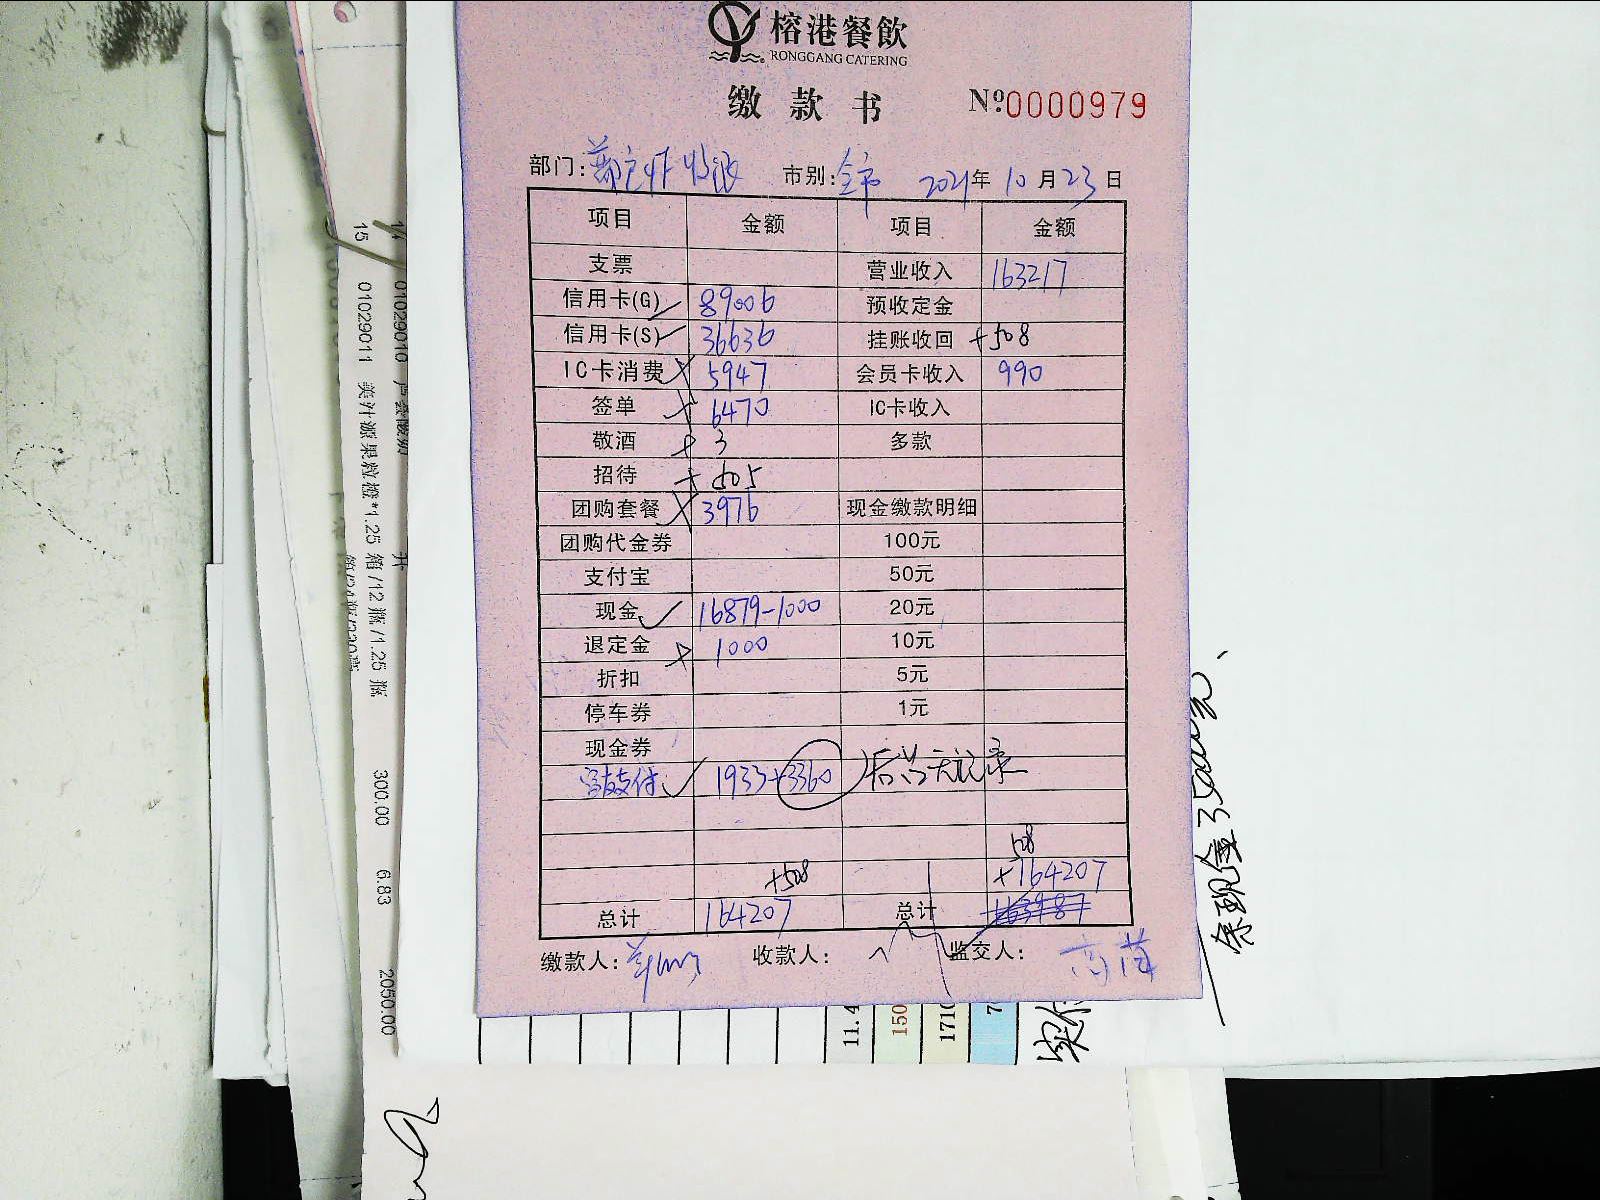 榕港餐飲
RONGGANG CATERING
缴款书 №:0000979
部门: 收银 市别:全市 2021年10月23日
项目 金额 项目 金额
支票 营业收入 163217
信用卡(G) 89006 预收定金
信用卡(S) 36636 挂账收回 +508
IC卡消费 5947 会员卡收入 990
签单 6470 IC卡收入
敬酒 3 多款
招待 +505
团购套餐 3976 现金缴款明细
团购代金券 100元
支付宝 50元
现金 16879-1000 20元
退定金 1000 10元
折扣 5元
停车券 1元
现金券
支付 1933+3360 后台无记录
508
+508 +164207
总计 164207 总计 163987
缴款人: 收款人: 监交人: 高茵
14 01029010
15 01029011 美汁源果粒橙*1.25 箱/12瓶/1.25 瓶 300.00 6.83 2050.00
11.4
150
1710
7
实付
余现金35000元